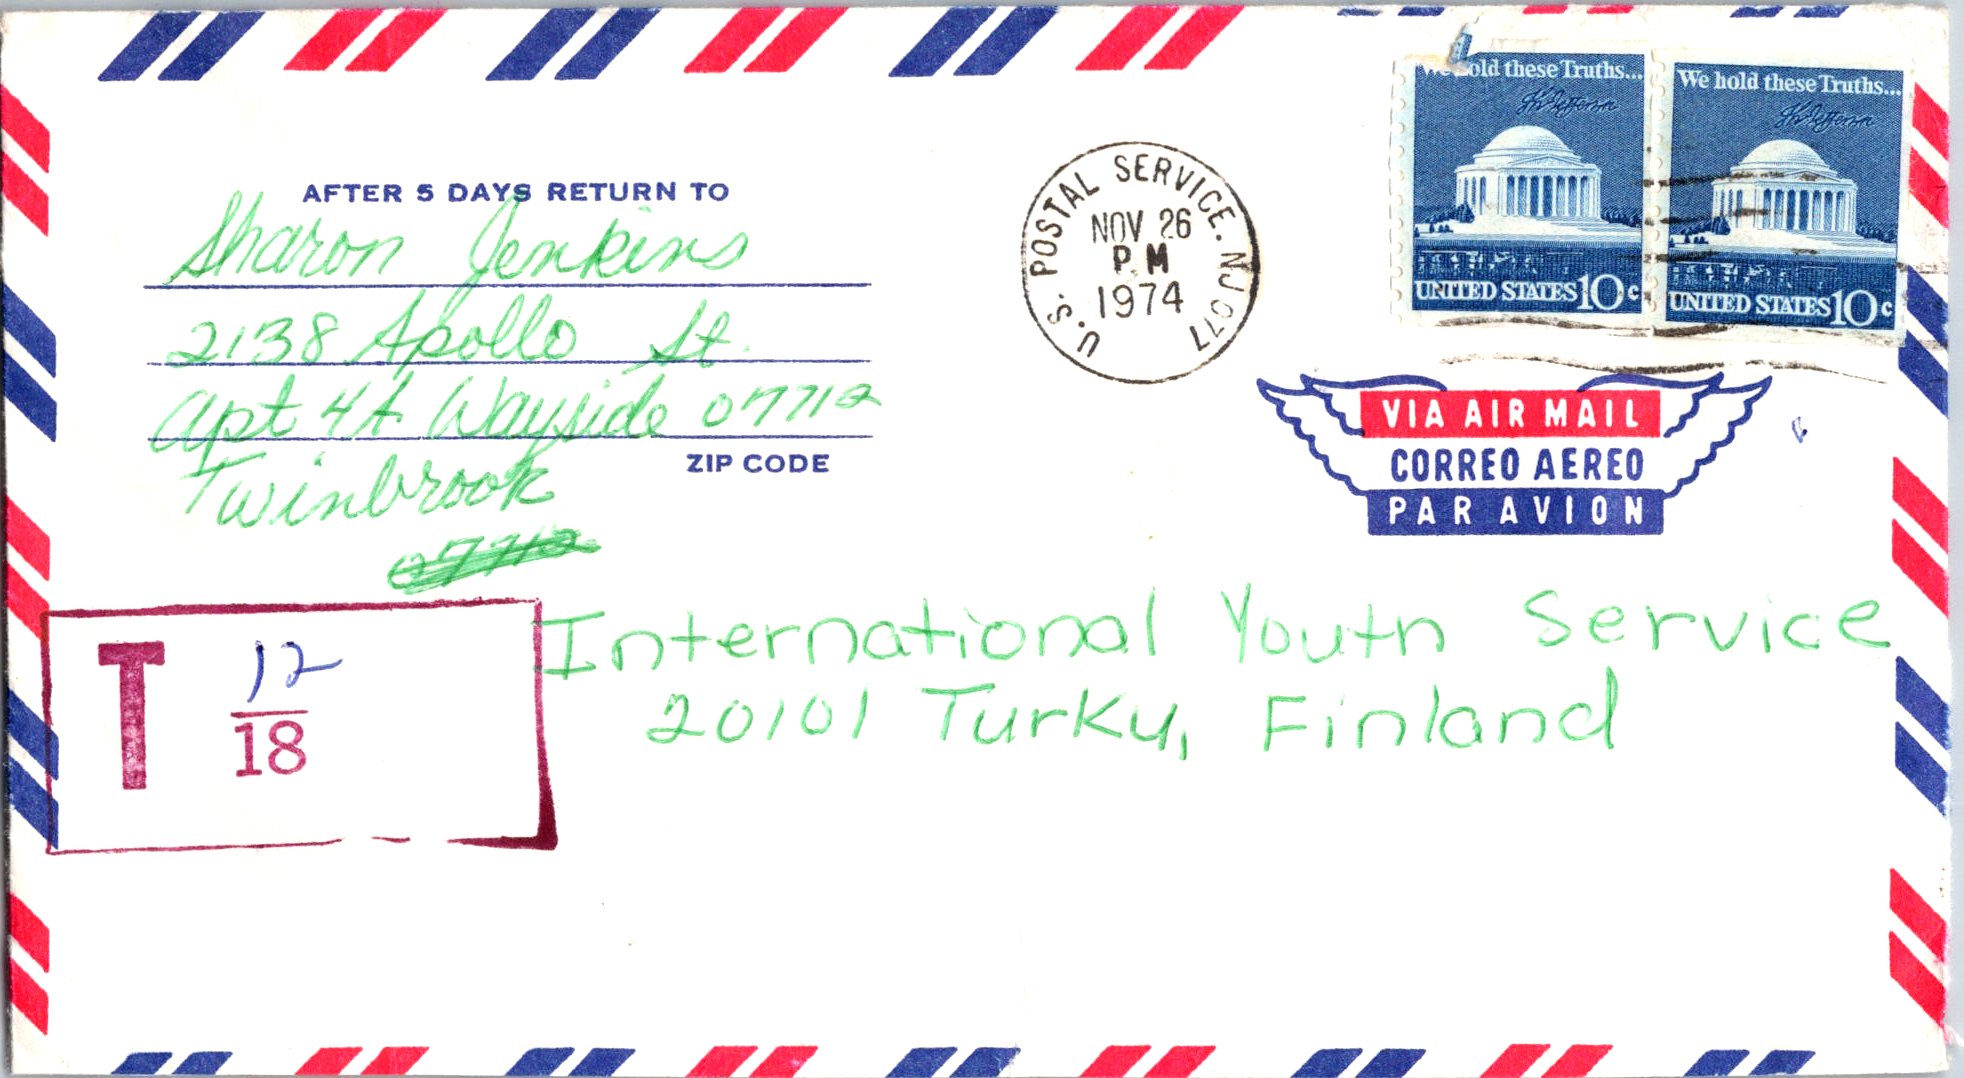 AFTER 5 DAYS RETURN TO
Sharon Jenkins
2138 Apollo St.
Apt 4A Wayside 07712
ZIP CODE
Twinbrook
07712
U.S. POSTAL SERVICE. NJ 077
NOV 26
PM
1974
We hold these Truths...
Th Jefferson
UNITED STATES 10c
We hold these Truths...
Th Jefferson
UNITED STATES 10c
VIA AIR MAIL
CORREO AEREO
PAR AVION
T 12
18
International Youth Service
20101 Turku, Finland